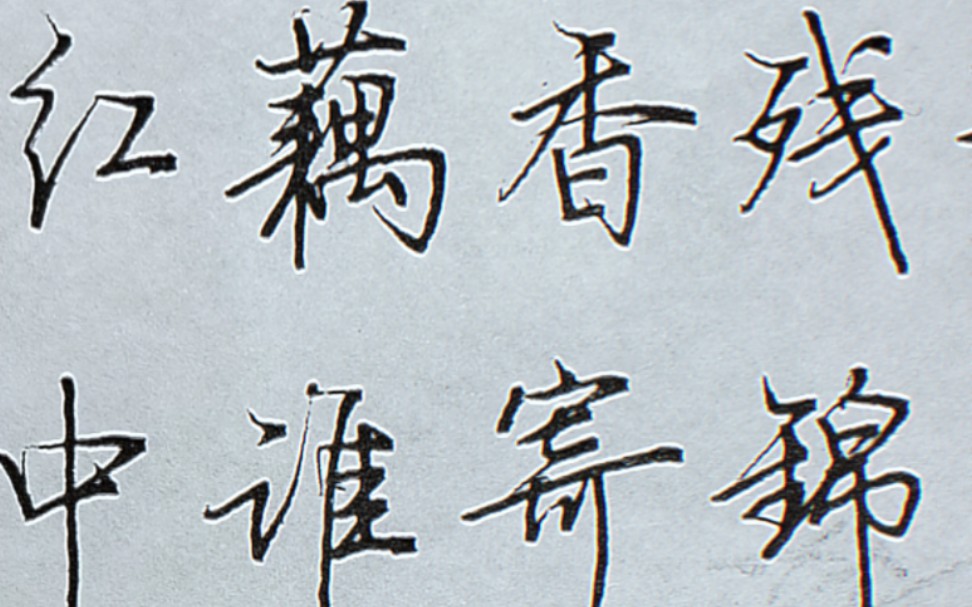 红藕香残
中谁寄錦